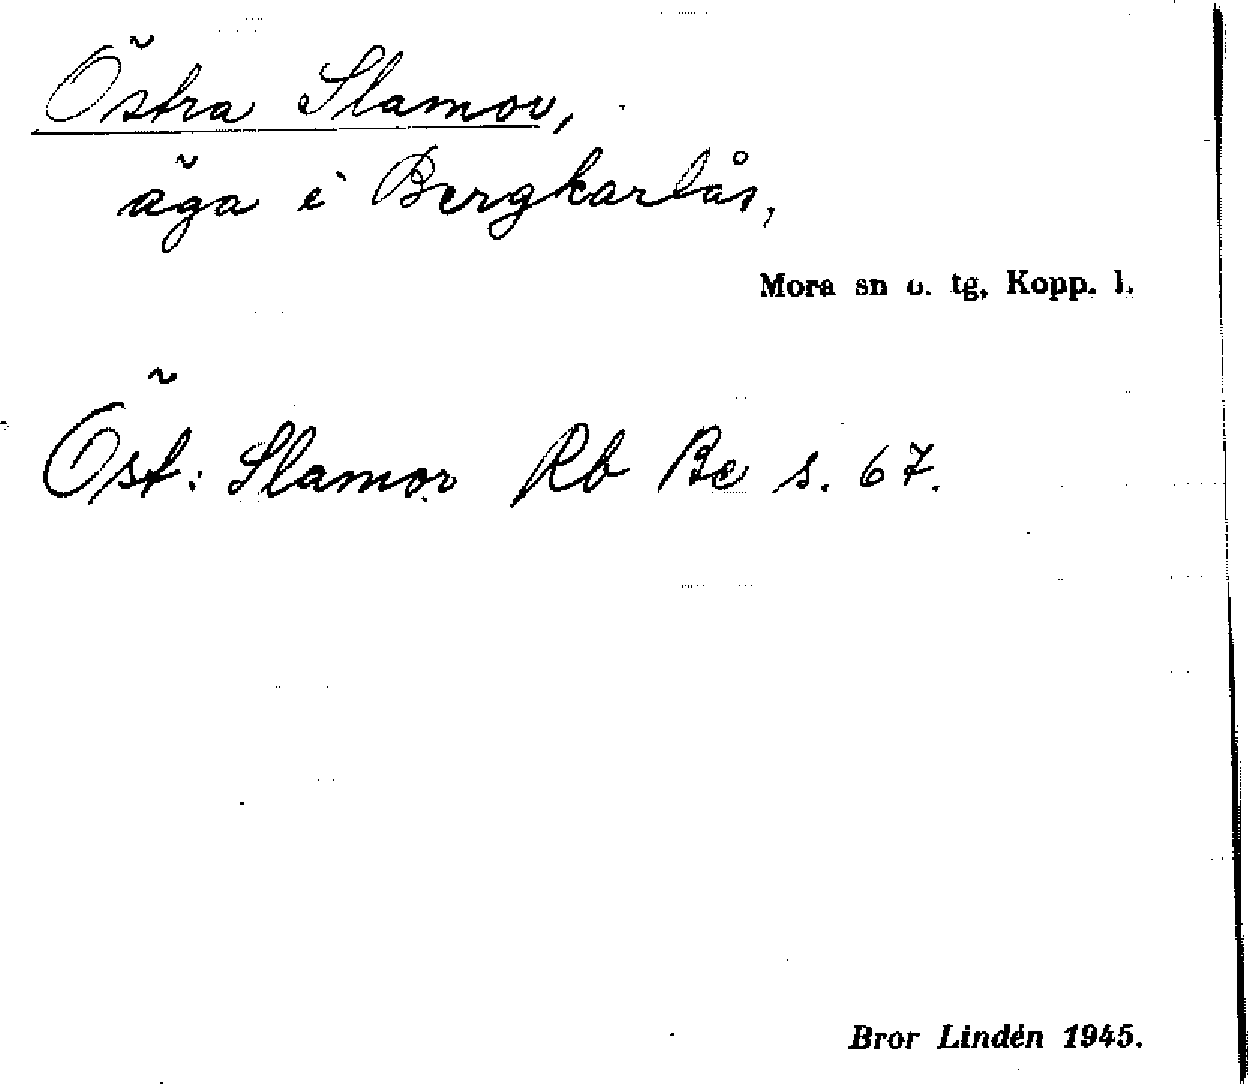 Östra Slamor,
äga i Bergkarlås,
Mora sn o. tg, Kopp. l.
Öst. Slamor Rb Be s. 67.
Bror Lindén 1945.